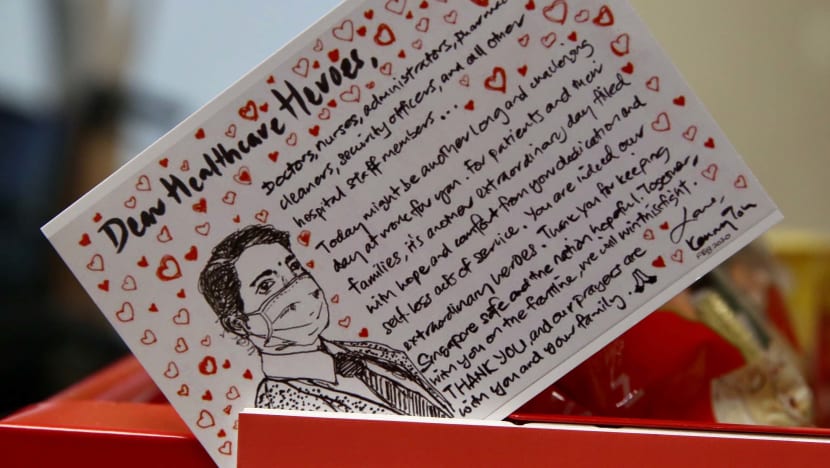 Dear Healthcare Heroes,
Doctors, nurses, administrators,
cleaners, security officers, and all other
hospital staff members...
Today might be another long and challenging
day at work for you. For patients and their
families, it's another extraordinary day filled
with hope and comfort from your dedication and
selfless acts of service. You are indeed our
extraordinary heroes. Thank you for keeping
Singapore safe and the nation hopeful. Together,
with you on the frontline, we will win this fight.
THANK YOU and our prayers are
with you and your family.
Love,
Feb 2020